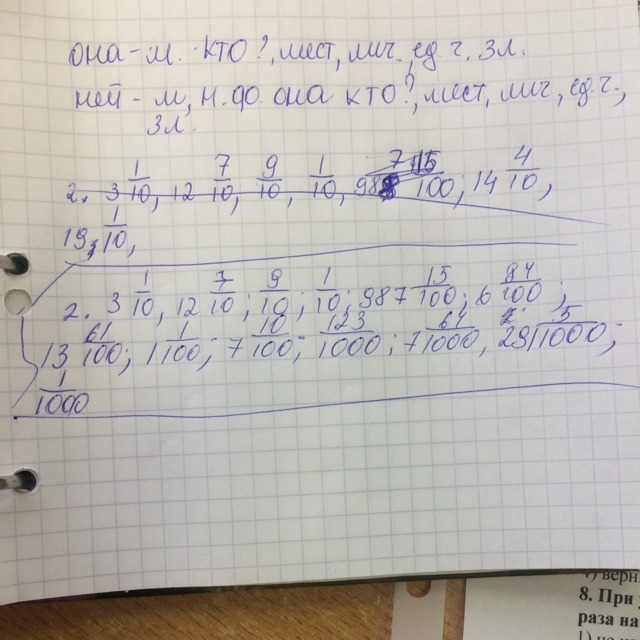 она - м. кто?, мест, лич., ед.ч, 3 л.
ней - м, н.ф. она кто?, мест, лич, ед.ч.,
3л.
2. 3 1/10, 12 7/10, 9/10, 1/10, 98 15/100, 14 4/10,
19, 1/10,
2. 3 1/10, 12 7/10; 9/10; 1/10; 987 15/100; 6 84/100;
13 61/100; 1 1/100; 7 10/100; 123/1000; 7 64/1000, 291 5/1000;
1/1000
4) верн
8. При
раза на